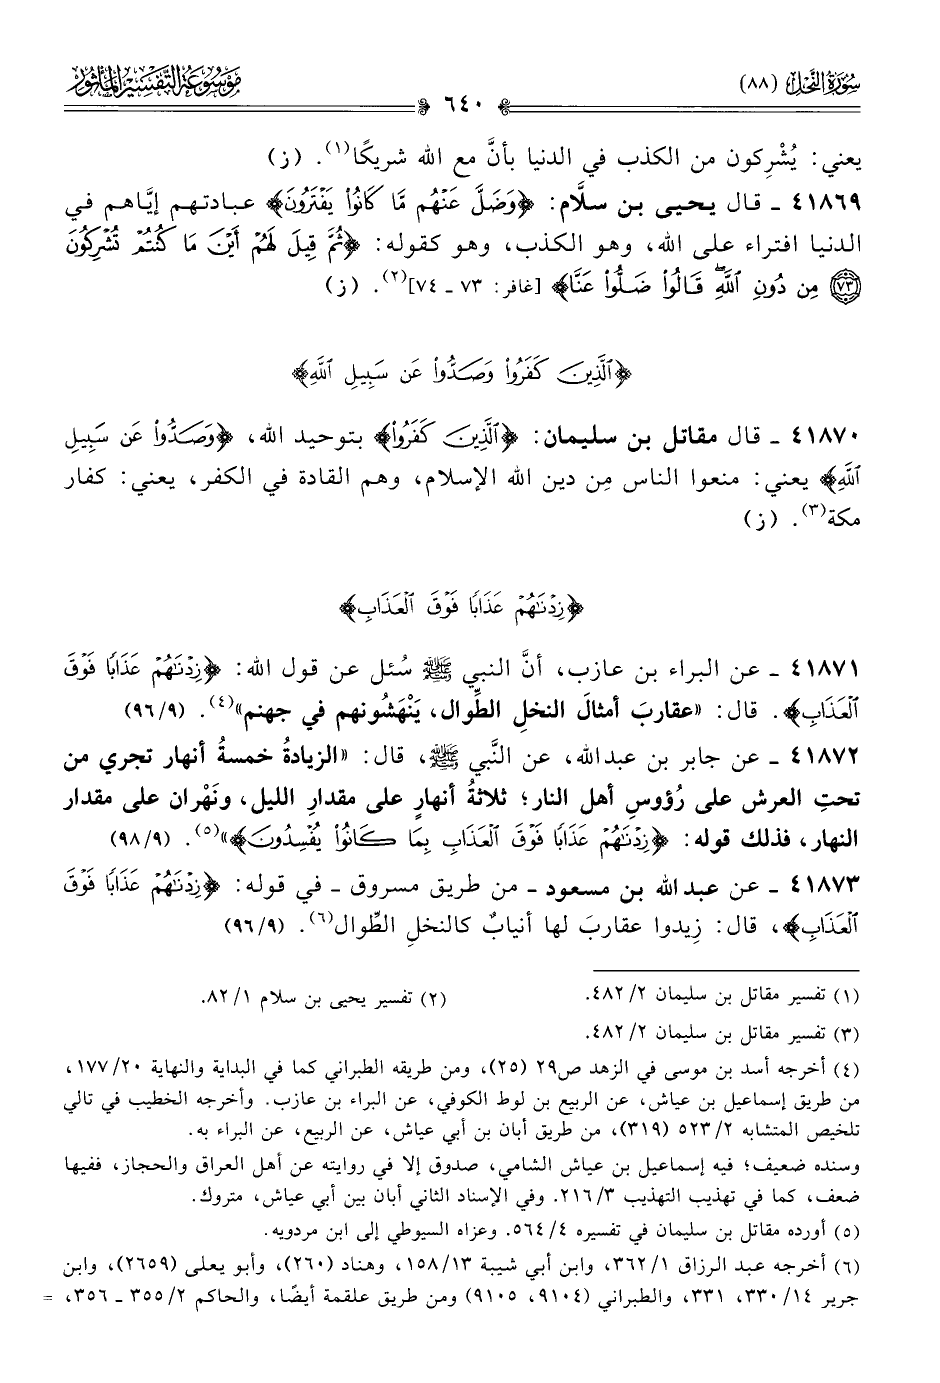 سُورَةُ النَّحْل (٨٨)
مَوْسُوعَةُ التَّفْسِيرِ المَأْثُور
٦٤٠
يعني: يُشْرِكون من الكذب في الدنيا بأنَّ مع الله شريكًا(١). (ز)
٤١٨٦٩ ـ قال يحيى بن سلَّام: ﴿وَضَلَّ عَنْهُم مَّا كَانُوا۟ يَفْتَرُونَ﴾ عبادتهم إيَّاهم في
الدنيا افتراء على الله، وهو الكذب، وهو كقوله: ﴿ثُمَّ قِيلَ لَهُمْ أَيْنَ مَا كُنتُمْ تُشْرِكُونَ
(٧٣) مِن دُونِ ٱللَّهِۖ قَالُوا۟ ضَلُّوا۟ عَنَّا﴾ [غافر: ٧٣ ـ ٧٤](٢). (ز)
﴿ٱلَّذِينَ كَفَرُوا۟ وَصَدُّوا۟ عَن سَبِيلِ ٱللَّهِ﴾
٤١٨٧٠ ـ قال مقاتل بن سليمان: ﴿ٱلَّذِينَ كَفَرُوا۟﴾ بتوحيد الله، ﴿وَصَدُّوا۟ عَن سَبِيلِ
ٱللَّهِ﴾ يعني: منعوا الناس مِن دين الله الإسلام، وهم القادة في الكفر، يعني: كفار
مكة(٣). (ز)
﴿زِدْنَٰهُمْ عَذَابًا فَوْقَ ٱلْعَذَابِ﴾
٤١٨٧١ ـ عن البراء بن عازب، أنَّ النبي ﷺ سُئل عن قول الله: ﴿زِدْنَٰهُمْ عَذَابًا فَوْقَ
ٱلْعَذَابِ﴾. قال: «عقاربَ أمثالَ النخلِ الطِّوال، يَنْهَشُونهم في جهنم»(٤). (٩/ ٩٦)
٤١٨٧٢ ـ عن جابر بن عبدالله، عن النَّبي ﷺ، قال: «الزيادةُ خمسةُ أنهار تجري من
تحتِ العرش على رُؤوسِ أهل النار؛ ثلاثةُ أنهارٍ على مقدارِ الليل، ونَهْران على مقدار
النهار، فذلك قوله: ﴿زِدْنَٰهُمْ عَذَابًا فَوْقَ ٱلْعَذَابِ بِمَا كَانُوا۟ يُفْسِدُونَ﴾»(٥). (٩/ ٩٨)
٤١٨٧٣ ـ عن عبد الله بن مسعود ـ من طريق مسروق ـ في قوله: ﴿زِدْنَٰهُمْ عَذَابًا فَوْقَ
ٱلْعَذَابِ﴾، قال: زِيدوا عقاربَ لها أنيابٌ كالنخلِ الطِّوال(٦). (٩/ ٩٦)
(١) تفسير مقاتل بن سليمان ٢/ ٤٨٢. (٢) تفسير يحيى بن سلام ١/ ٨٢.
(٣) تفسير مقاتل بن سليمان ٢/ ٤٨٢.
(٤) أخرجه أسد بن موسى في الزهد ص٢٩ (٢٥)، ومن طريقه الطبراني كما في البداية والنهاية ٢٠/ ١٧٧،
من طريق إسماعيل بن عياش، عن الربيع بن لوط الكوفي، عن البراء بن عازب. وأخرجه الخطيب في تالي
تلخيص المتشابه ٢/ ٥٢٣ (٣١٩)، من طريق أبان بن أبي عياش، عن الربيع، عن البراء به.
وسنده ضعيف؛ فيه إسماعيل بن عياش الشامي، صدوق إلا في روايته عن أهل العراق والحجاز، ففيها
ضعف، كما في تهذيب التهذيب ٣/ ٢١٦. وفي الإسناد الثاني أبان بين أبي عياش، متروك.
(٥) أورده مقاتل بن سليمان في تفسيره ٤/ ٥٦٤. وعزاه السيوطي إلى ابن مردويه.
(٦) أخرجه عبد الرزاق ١/ ٣٦٢، وابن أبي شيبة ١٣/ ١٥٨، وهناد (٢٦٠)، وأبو يعلى (٢٦٥٩)، وابن
جرير ١٤/ ٣٣٠، ٣٣١، والطبراني (٩١٠٤، ٩١٠٥) ومن طريق علقمة أيضًا، والحاكم ٢/ ٣٥٥ ـ ٣٥٦، =